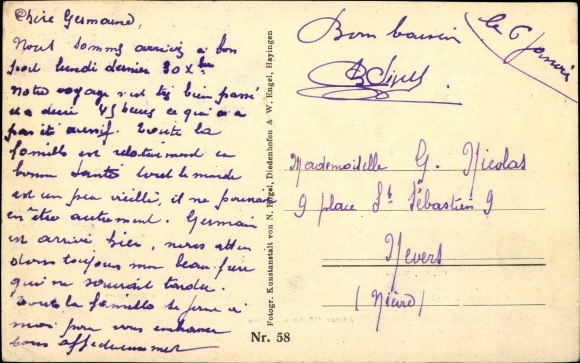 Chère Germaine,
Nous sommes arrivés à bon
port lundi dernier 30 Xbre
Notre voyage s'est très bien passé
il a duré 45 heures ce qui n'a
pas été excessif. Toute la
famille est relativement en
bonne santé tout le monde
est un peu vieilli, il ne pouvait
en être autrement. Germain
est arrivé hier, nous atten
dons toujours mon beau frère
qui ne saurait tarder.
Toute la famille se joint à
moi pour vous embrasser
bons affectueusement
Fotogr. Kunstanstalt von N. Hügel, Diedenhofen & W. Engel, Hayingen
Nr. 58
le 6 Janvier
Bon baiser
Mademoiselle G. Nicolas
9 place St Sébastien 9
Nevers
(Nièvre)